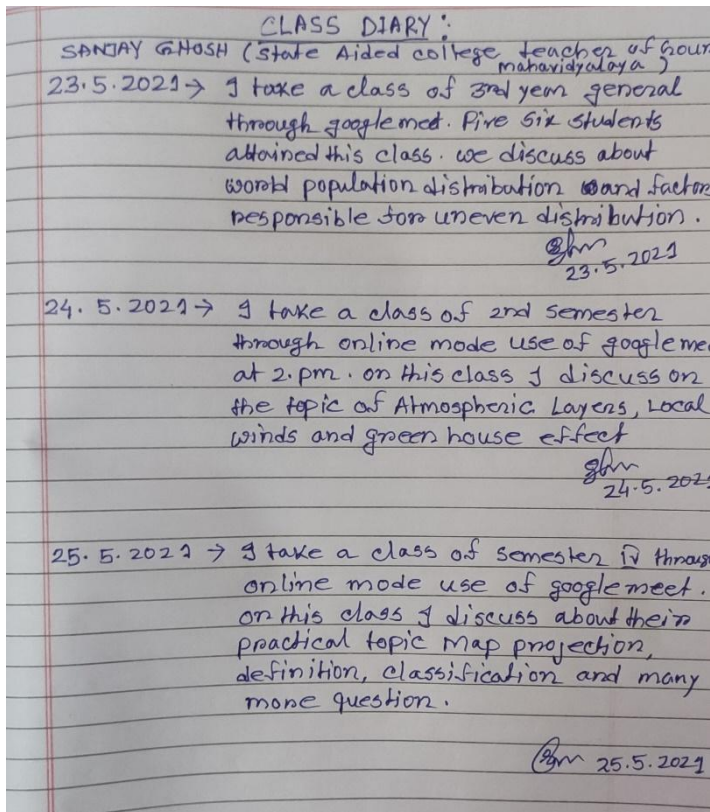 CLASS DIARY:
SANJAY GHOSH (State Aided college teacher of Gour
mahavidyalaya)
23.5.2021 → I take a class of 3rd year general
through googlemet. Five six students
attained this class. we discuss about
world population distribution and factor
responsible for uneven distribution.
23.5.2021
24.5.2021 → I take a class of 2nd semester
through online mode use of googleme
at 2.pm. on this class I discuss on
the topic of Atmospheric Layers, Local
winds and green house effect
24.5.202
25.5.2021 → I take a class of semester IV throug
online mode use of googlemeet.
on this class I discuss about their
practical topic Map projection,
definition, classification and many
more question.
25.5.2021